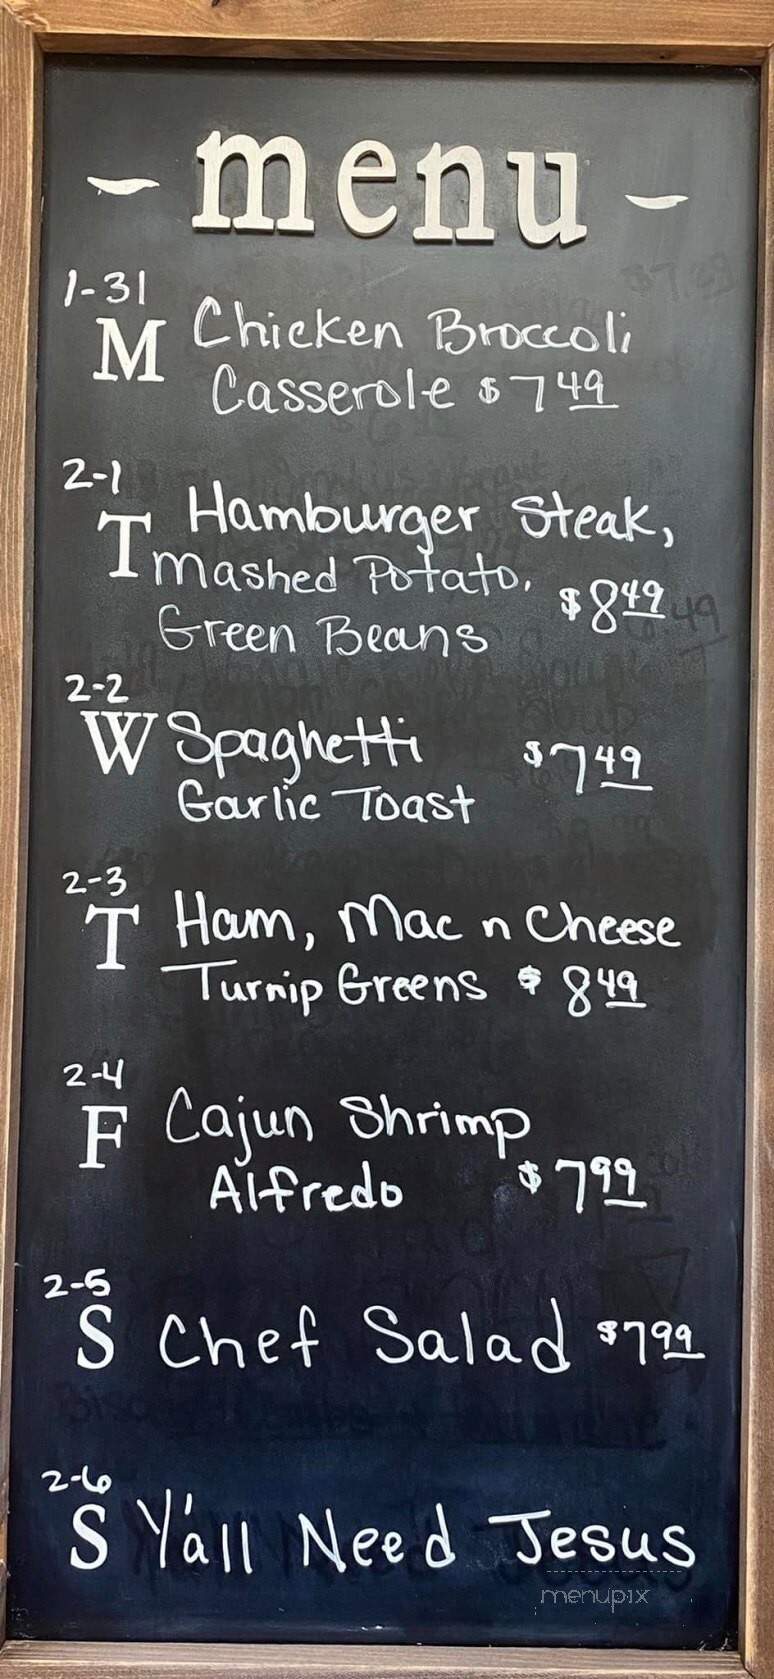 - menu -
1-31
M Chicken Broccoli
Casserole $7.49
2-1
T Hamburger Steak,
Mashed Potato,
Green Beans $8.49
2-2
W Spaghetti $7.49
Garlic Toast
2-3
T Ham, Mac n Cheese
Turnip Greens $8.49
2-4
F Cajun Shrimp
Alfredo $7.99
2-5
S Chef Salad $7.99
2-6
S Y'all Need Jesus
menupix